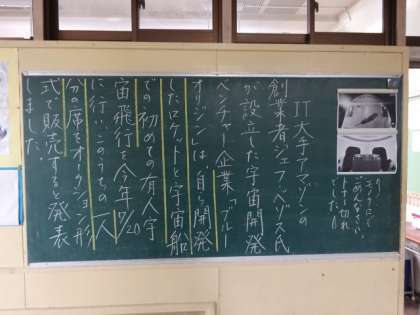 IT大手アマゾンの
創業者ジェフ・ベゾス氏
が設立した宇宙開発
ベンチャー企業「ブルー
オリジン」は、自ら開発
したロケットと宇宙船
での初めての有人宇
宙飛行を今年7/20
に行い、このうちの一人
分の席をオークション形
式で販売すると発表
しました。
ごめんなさい。